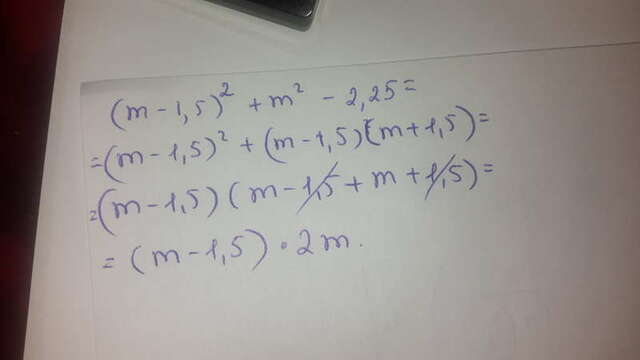 (m - 1,5)² + m² - 2,25 =
= (m - 1,5)² + (m - 1,5)(m + 1,5) =
= (m - 1,5) (m - 1,5 + m + 1,5) =
= (m - 1,5) · 2m.